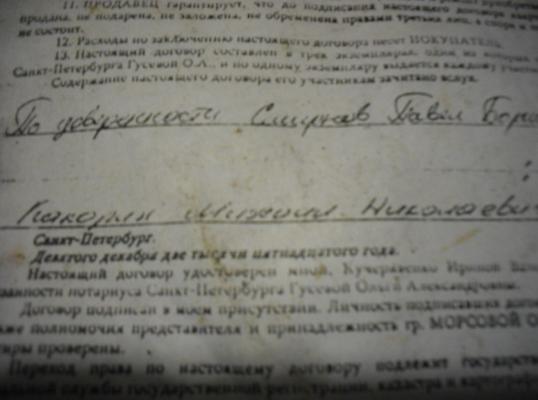 11. ПРОДАВЕЦ гарантирует, что до подписания настоящего договора
продана, не подарена, не заложена, не обременена правами третьих лиц, в споре и
не состоит.
12. Расходы по заключению настоящего договора несет ПОКУПАТЕЛЬ.
13. Настоящий договор составлен в трех экземплярах, один из которых
Санкт-Петербурга Гусевой О.А., и по одному экземпляру выдается каждому
Содержание настоящего договора его участникам зачитано вслух.
По доверенности Смирнов Павел
Михаил Николаевич
Санкт-Петербург.
Девятого декабря две тысячи пятнадцатого года.
Настоящий договор удостоверен мной, Кучеравенко Ириной
нотариуса Санкт-Петербурга Гусевой Ольги Александровны.
Договор подписан в моем присутствии. Личность подписавших
полномочия представителя и принадлежность гр. МОРСОВОЙ
проверены.
Переход права по настоящему договору подлежит
службы государственной регистрации, кадастра и